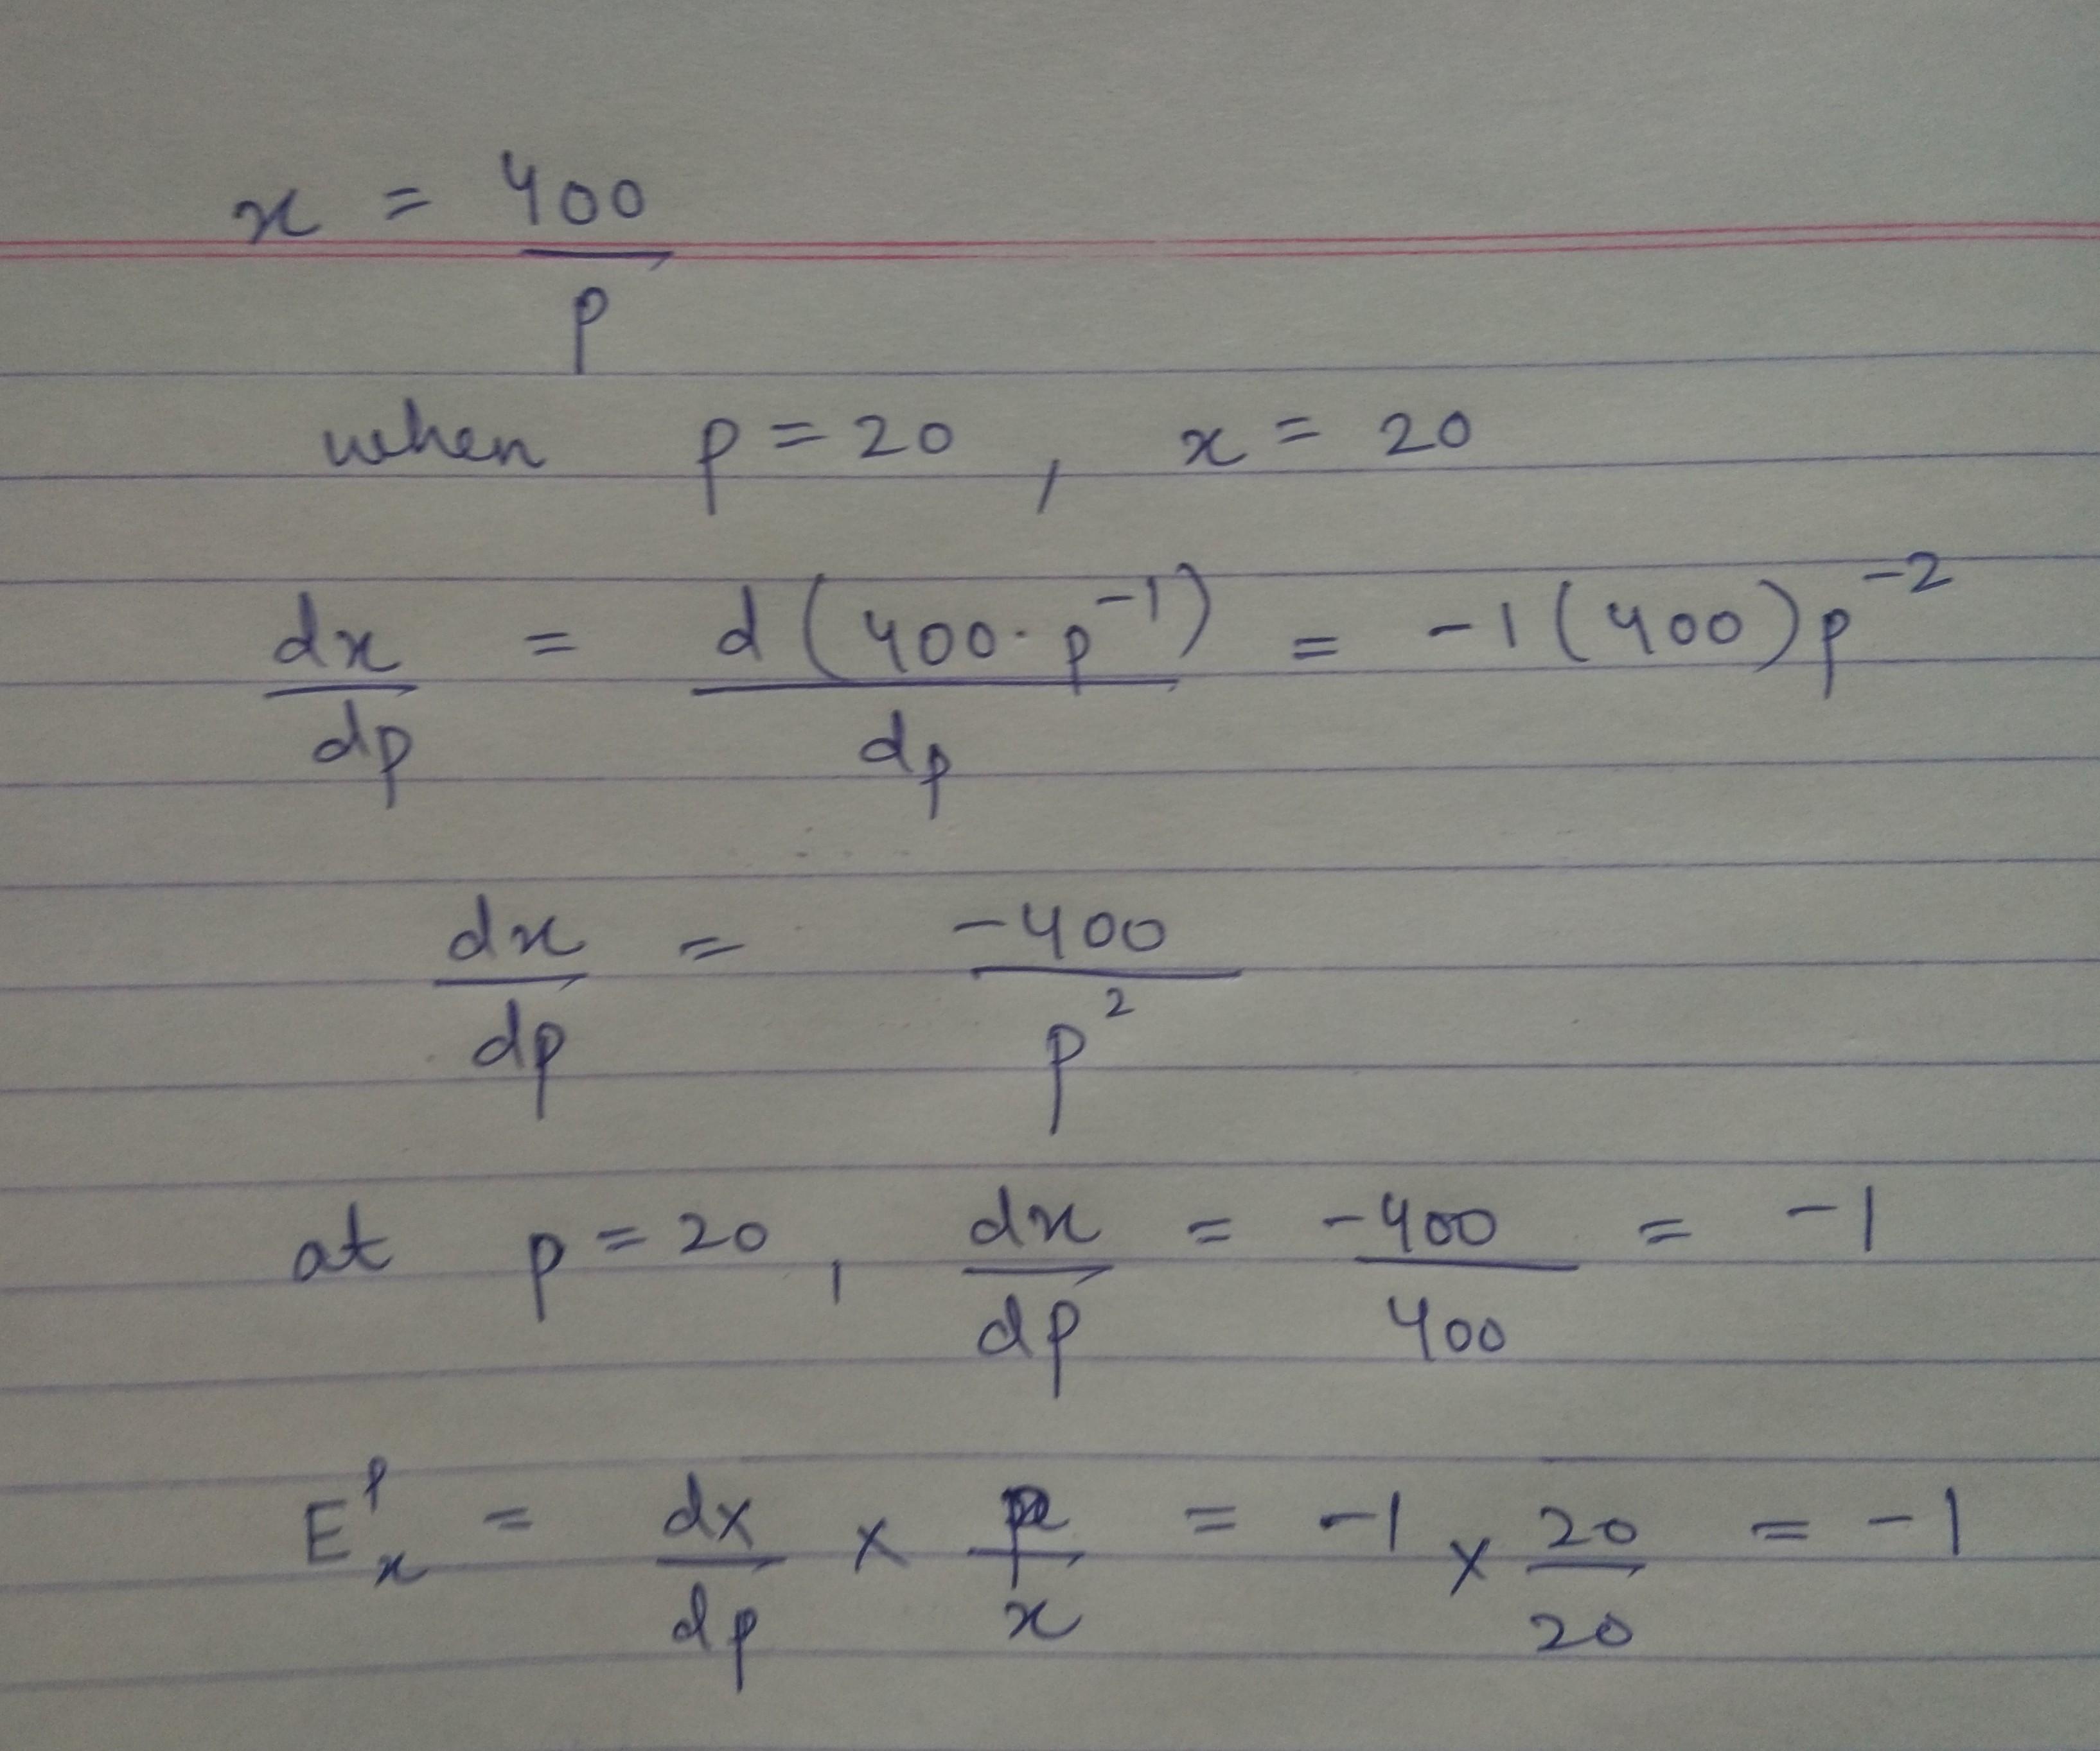 x = 400/p
when p = 20 , x = 20
dx/dp = d(400·p^-1)/dp = -1(400)p^-2
dx/dp = -400/p^2
at p = 20 , dx/dp = -400/400 = -1
E^p_x = dx/dp × p/x = -1 × 20/20 = -1